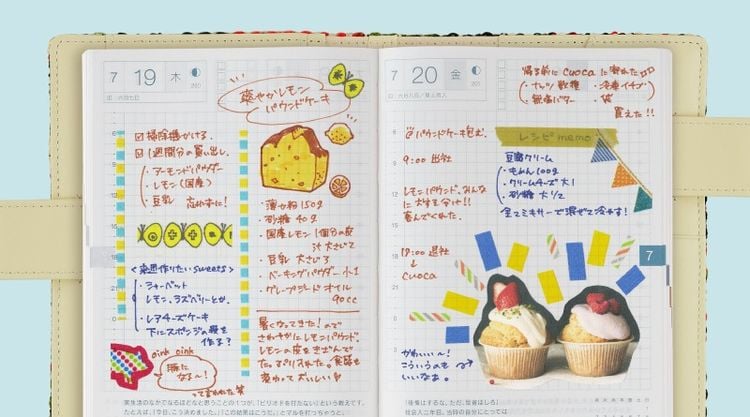 7 19 木
爽やかレモン
パウンドケーキ
☑ 掃除機かける。
☑ 1週間分の買い出し。
・アーモンドパウダー
・レモン（国産）
・豆乳 忘れずに！
・薄力粉 150g
・砂糖 40g
・国産レモン 1個分の皮
汁 大さじ2
・豆乳 大さじ3
・ベーキングパウダー 小1
・グレープシードオイル
90cc
<来週作りたいsweets>
・シャーベット
レモン、ラズベリーとか。
・レアチーズケーキ
下にスポンジの層を
作る？
oink oink
豚に
なるよ〜！
って言われた 笑
暑くなってきた！ので
さわやかにレモンケーキ
レモンの皮をきざんで
たっぷり入れた。食感も
変わっておいしい
7 20 金
帰る前にcuocaに寄れた
・ナッツ数種 ・冷凍イチゴ
・無塩バター ・袋
買えた!!
@パウンドケーキ包む。
9:00 出社
レモンパウンド、みんな
に大好評!!
喜んでくれた。
19:00 退社
↓
cuoca
レシピmemo
豆腐クリーム
・もめん 100g
・クリームチーズ 大1
・砂糖 大1/2
全てミキサーで混ぜて冷やす！
7
かわいい〜！
こういうのも
いいなぁ。